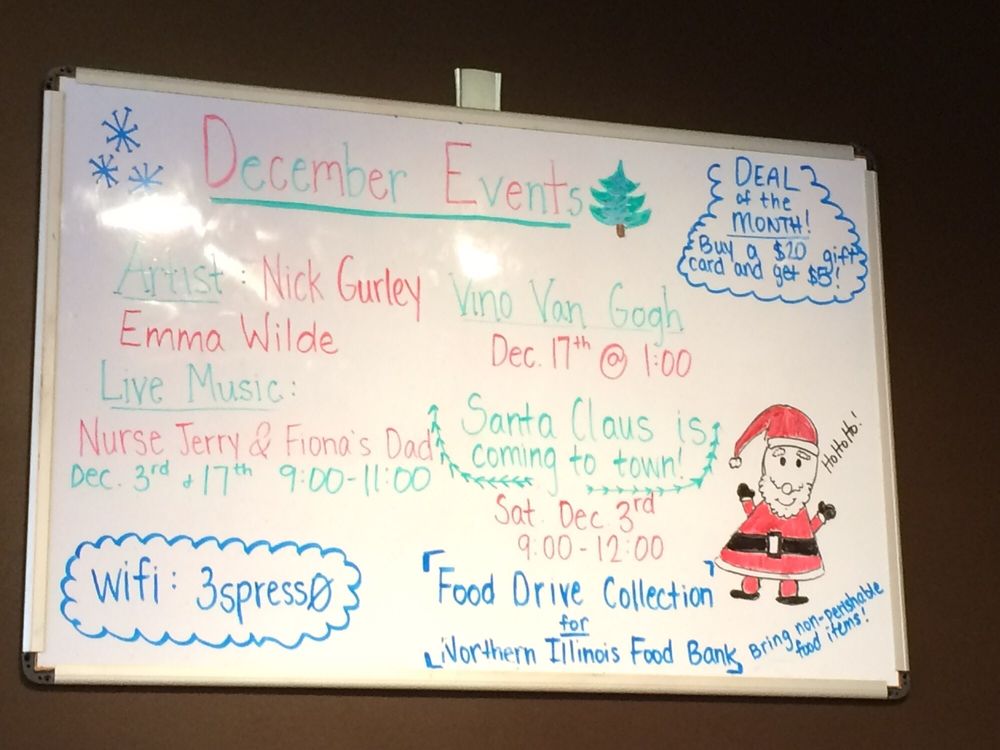 December Events
DEAL
of the
MONTH!
Buy a $20 gift
card and get $5!
Artist: Nick Gurley
Emma Wilde
Live Music:
Nurse Jerry & Fiona's Dad
Dec. 3rd & 17th 9:00-11:00
Vino Van Gogh
Dec. 17th @ 1:00
Santa Claus is
coming to town!
Sat. Dec. 3rd
9:00-12:00
HoHoHo!
Wifi: 3spressØ
Food Drive Collection
for
Northern Illinois Food Bank
Bring non-perishable
food items!